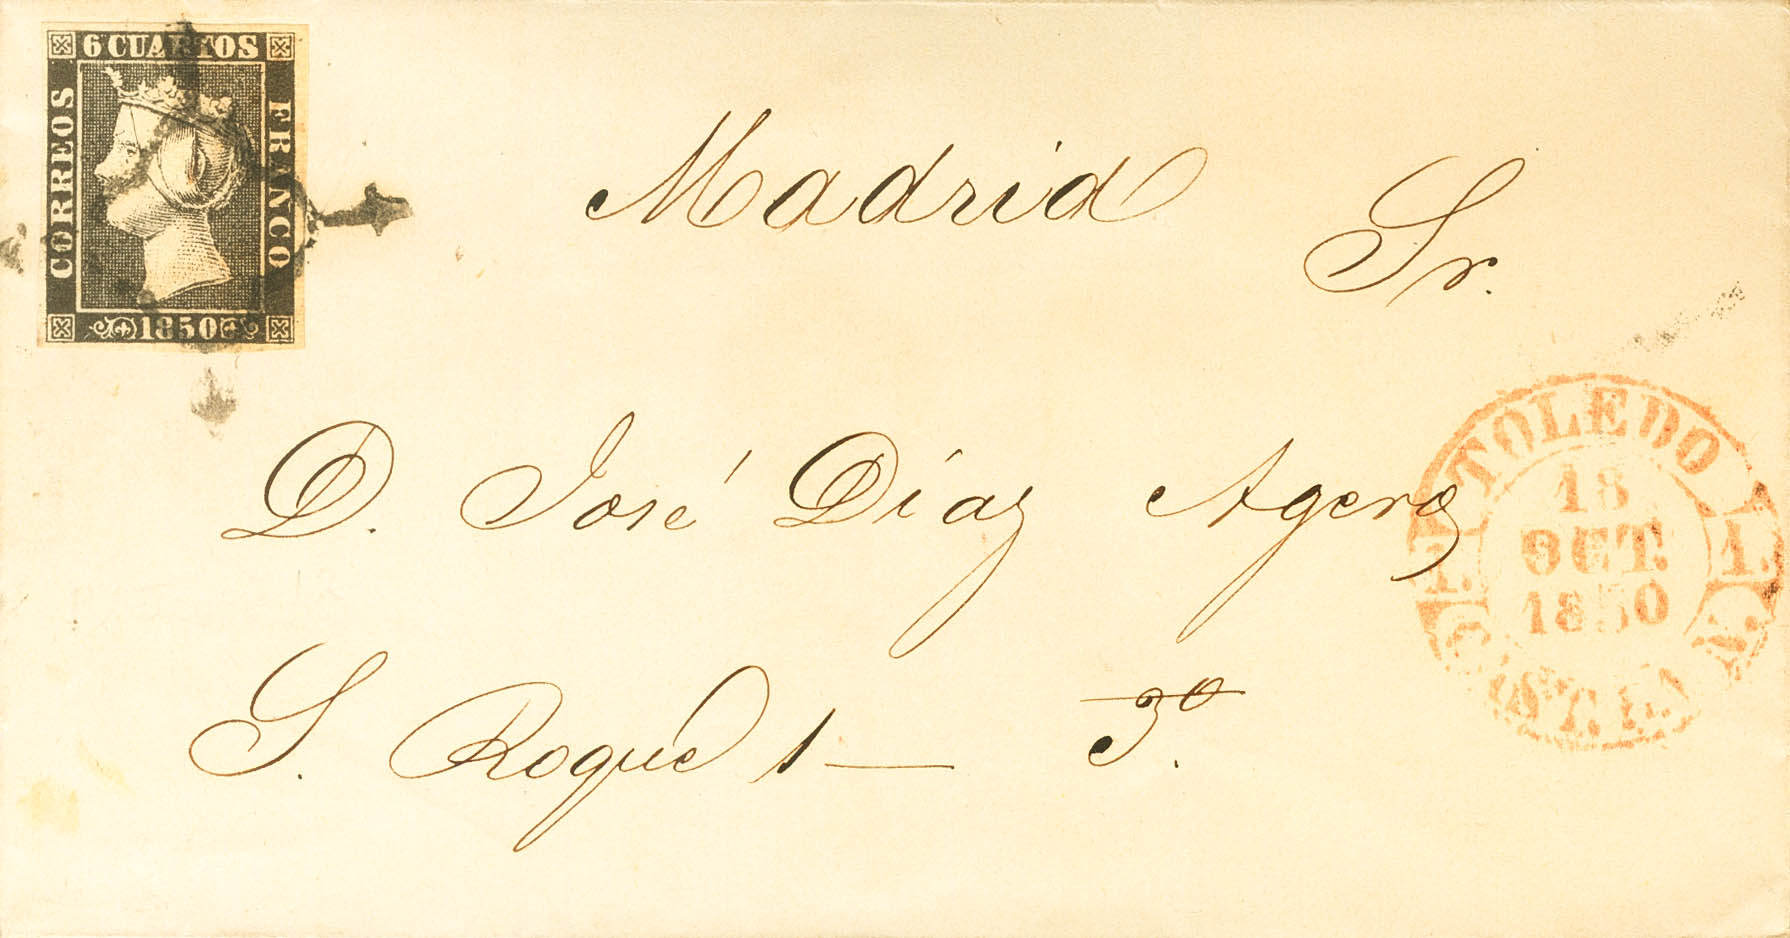 6 CUARTOS
CORREOS
FRANCO
1850
Madrid
Sr.
D. José Díaz Agero
S. Roque 1— 3º.
TOLEDO
18
OCT.
1850
1.
CAST. LA N.